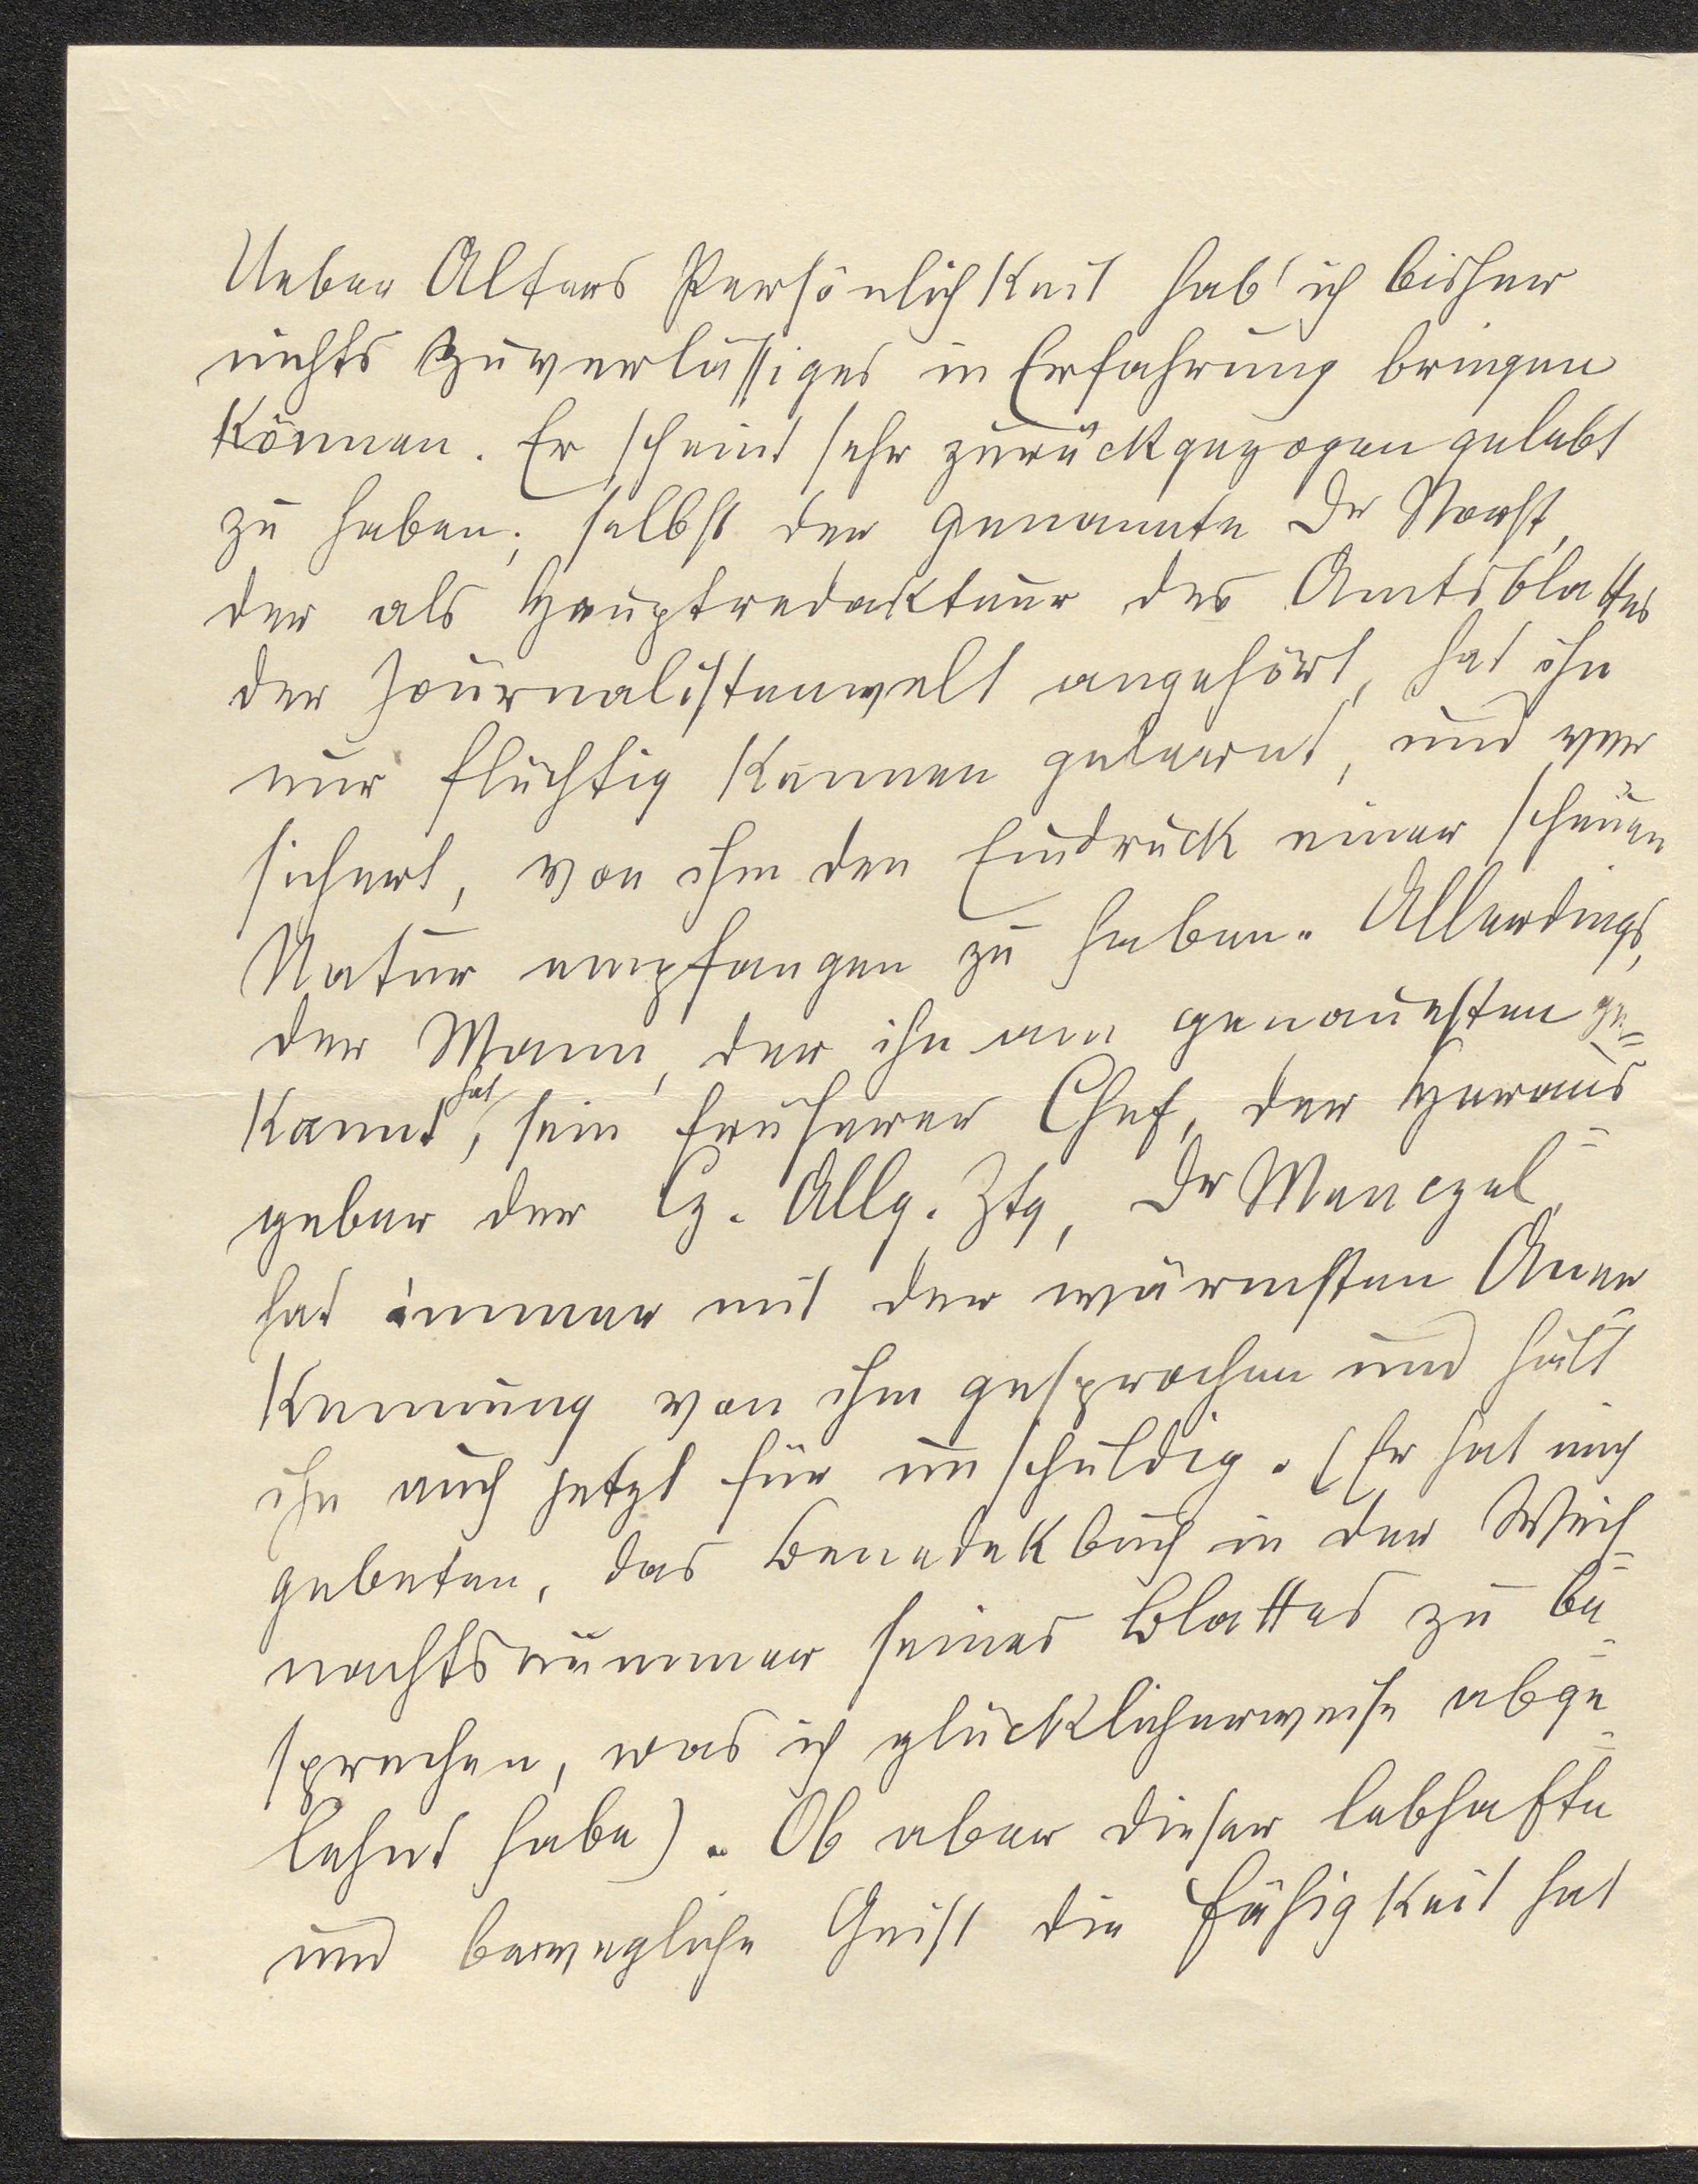 Ueber Alters Persönlichkeit hab' ich bisher
nichts Zuverlässiges in Erfahrung bringen
können. Er scheint sehr zurückgezogen gelebt
zu haben; selbst der genannte Dr Norst,
der als Hauptredakteur des Amtsblattes
der Journalistenwelt angehört, hat ihn
nur flüchtig kennen gelernt, und ver
sichert, von ihm den Eindruck einer scheuen
Natur empfangen zu haben. Allerdings,
der Mann, der ihn am genauesten ge=
kannt hat, sein früherer Chef, der Heraus=
geber der Cz. Allg. Ztg, Dr Menczel,
hat immer mit der wärmsten Aner=
kennung von ihm gesprochen und hält
ihn auch jetzt für unschuldig. (Er hat mich
gebeten, das Benedekbuch in der Weih=
nachtsnummer seines Blattes zu be=
sprechen, was ich glücklicherweise abge=
lehnt habe). Ob aber dieser lebhafte
und bewegliche Geist die Fähigkeit hat